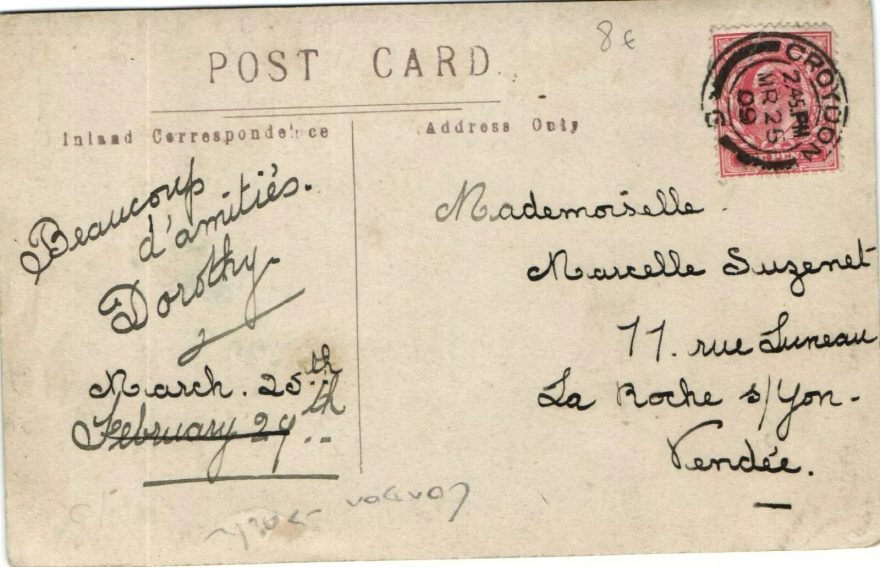 8 €
POST CARD
Inland Correspondence
Address Only
CROYDON
2.45 PM
MR 25
09
Beaucoup
d'amitiés.
Dorothy.
March. 25th
February 29th
Mademoiselle
Marcelle Suzenet
11. rue Luneau
La Roche s/Yon-
Vendée.
London